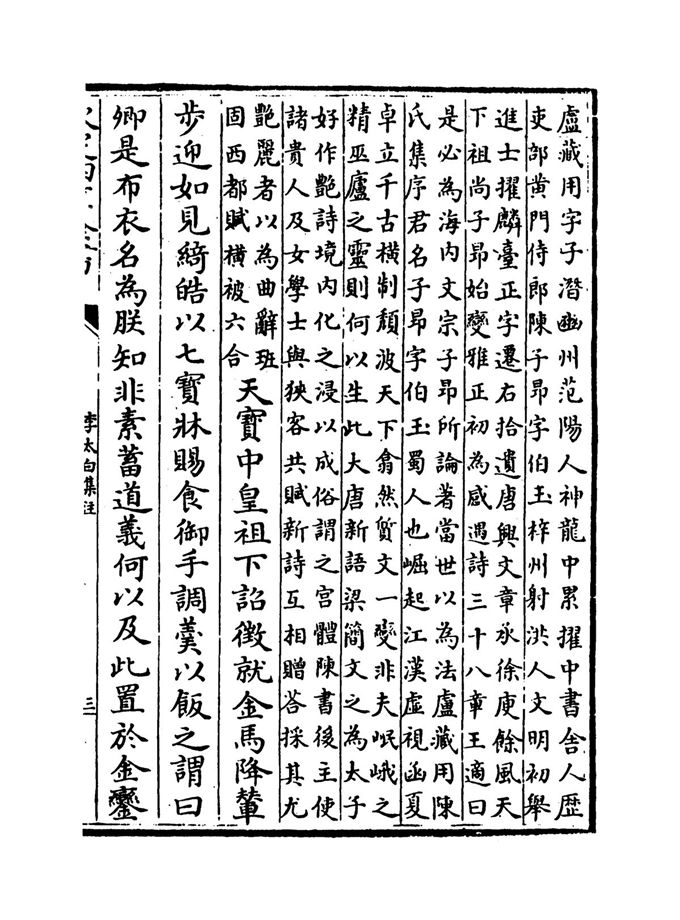 盧藏用字子潛幽州范陽人神龍中累擢中書舍人歴
吏部黄門侍郎陳子昂字伯玉梓州射洪人文明初舉
進士擢麟臺正字遷右拾遺唐興文章承徐庾餘風天
下祖尚子昂始變雅正初為感遇詩三十八章王適曰
是必為海内文宗子昂所論著當世以為法盧藏用陳
氏集序君名子昂字伯玉蜀人也崛起江漢虛視函夏
卓立千古横制頽波天下翕然質文一變非夫岷峨之
精巫廬之靈則何以生此大唐新語梁簡文之為太子
好作艶詩境内化之浸以成俗謂之宫體陳書後主使
諸貴人及女學士與狹客共賦新詩互相贈答採其尤
艶麗者以為曲辭班
固西都賦横被六合
天寶中皇祖下詔徵就金馬降輦
步迎如見綺皓以七寶牀賜食御手調羹以飯之謂曰
卿是布衣名為朕知非素蓄道義何以及此置於金鑾
李太白集注
三